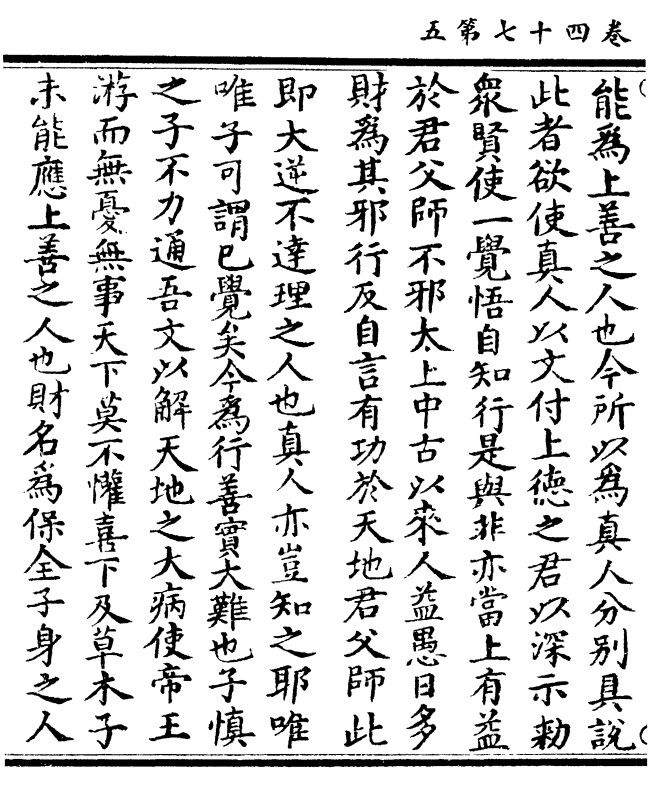 卷四十七第五
能爲上善之人也今所以爲真人分別具說
此者欲使真人以文付上德之君以深示勑
衆賢使一覺悟自知行是與非亦當上有益
於君父師不邪太上中古以來人益愚日多
財爲其邪行反自言有功於天地君父師此
即大逆不達理之人也真人亦豈知之耶唯
唯子可謂已覺矣今爲行善實大難也子慎
之子不力通吾文以解天地之大病使帝王
游而無憂無事天下莫不懽喜下及草木子
未能應上善之人也財名爲保全子身之人